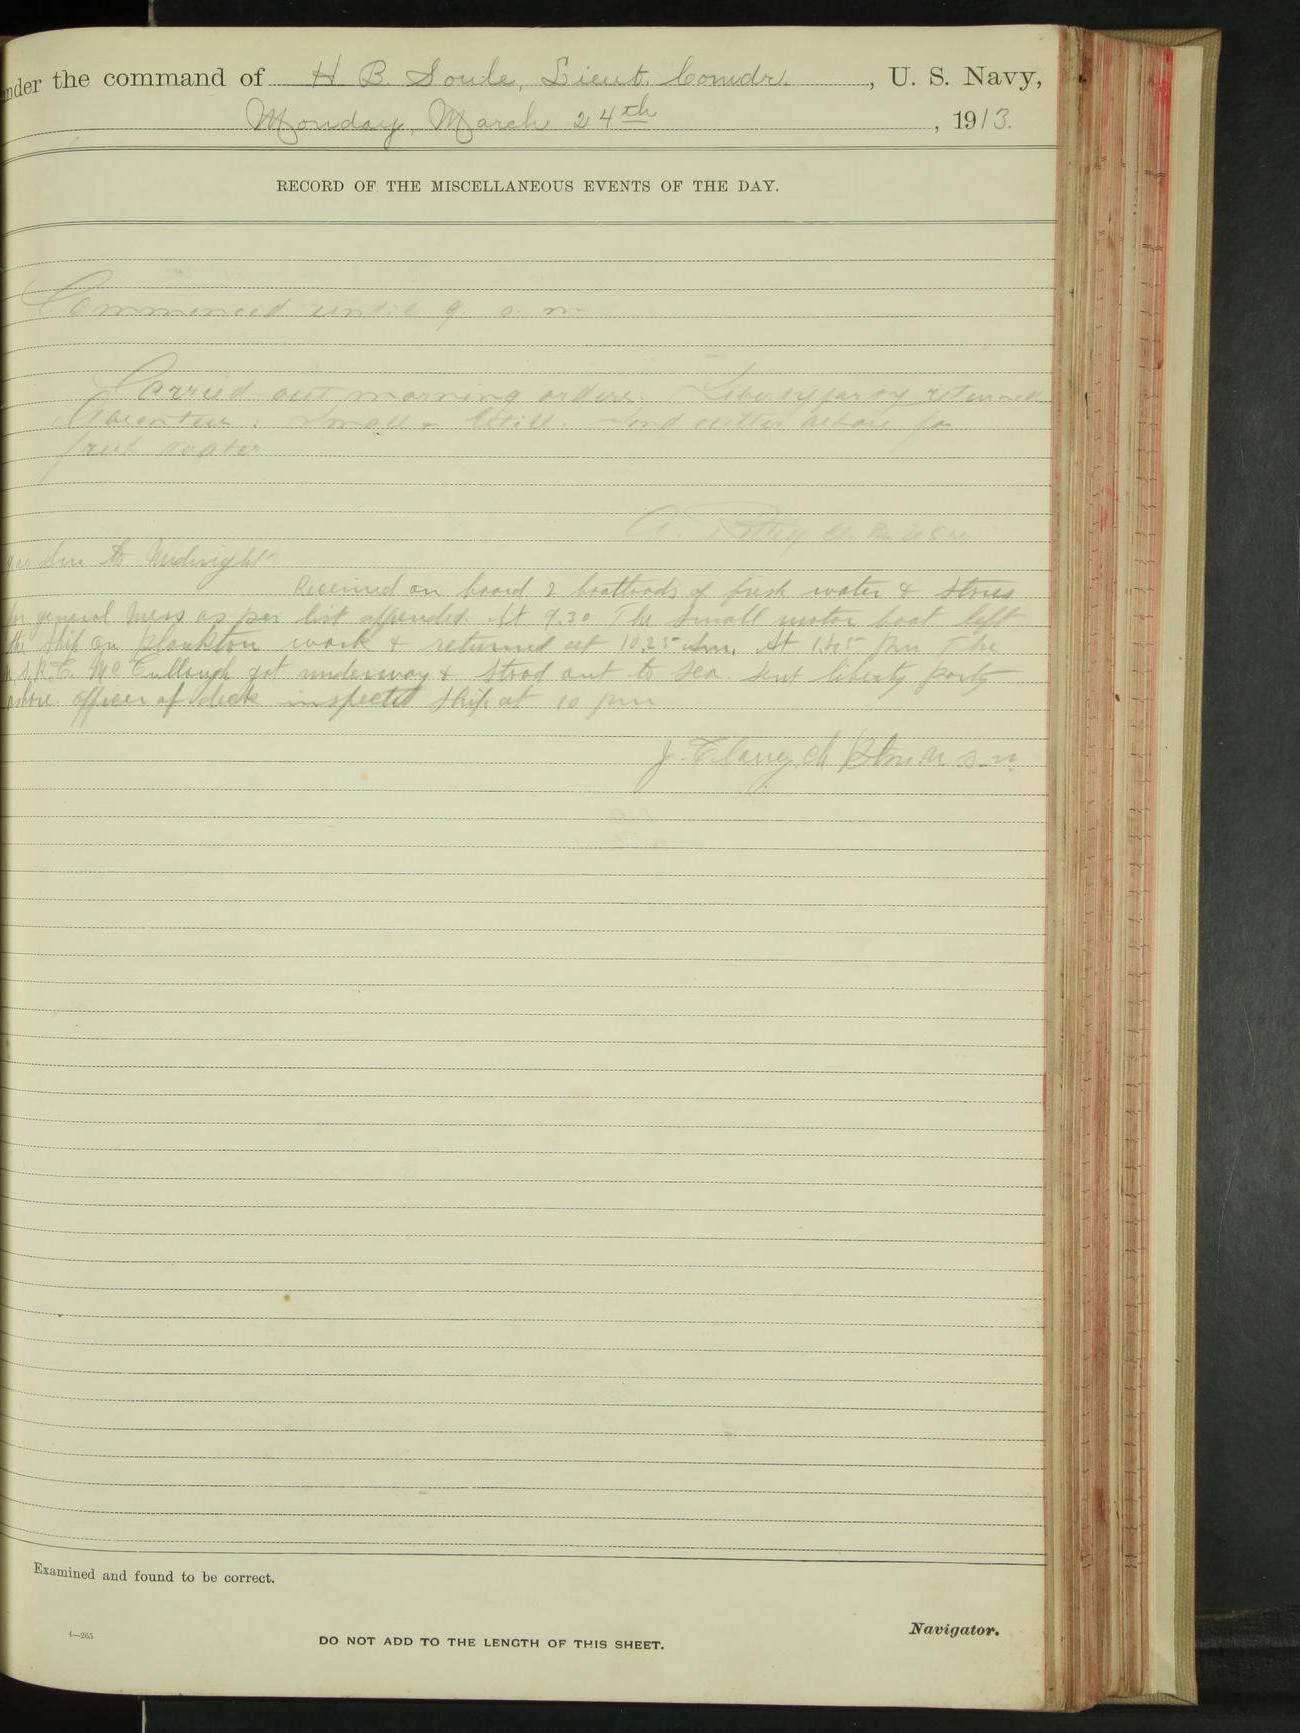 under the command of H. B. Soule, Lieut. Comdr., U. S. Navy,
Monday, March 24th, 1913.
RECORD OF THE MISCELLANEOUS EVENTS OF THE DAY.
Commenced until 9. a. m.
Carried out morning orders. Liberty party returned
Small Still. Send cutter ashore for
fresh water
A.
to Midnight
Received on board 2 boatloads of fresh water & stores
for general mess as per list appended. At 9.30 The small motor boat left
the ship on plankton work & returned at 10.25 am. At 1.45 pm The
U.S.R.C. McCullough got underway & stood out to sea. Sent liberty party
ashore. Officer of deck inspected ship at 10 pm
J. Clancy, Ch Btsn. U.S.N.
Examined and found to be correct.
4—265
DO NOT ADD TO THE LENGTH OF THIS SHEET.
Navigator.